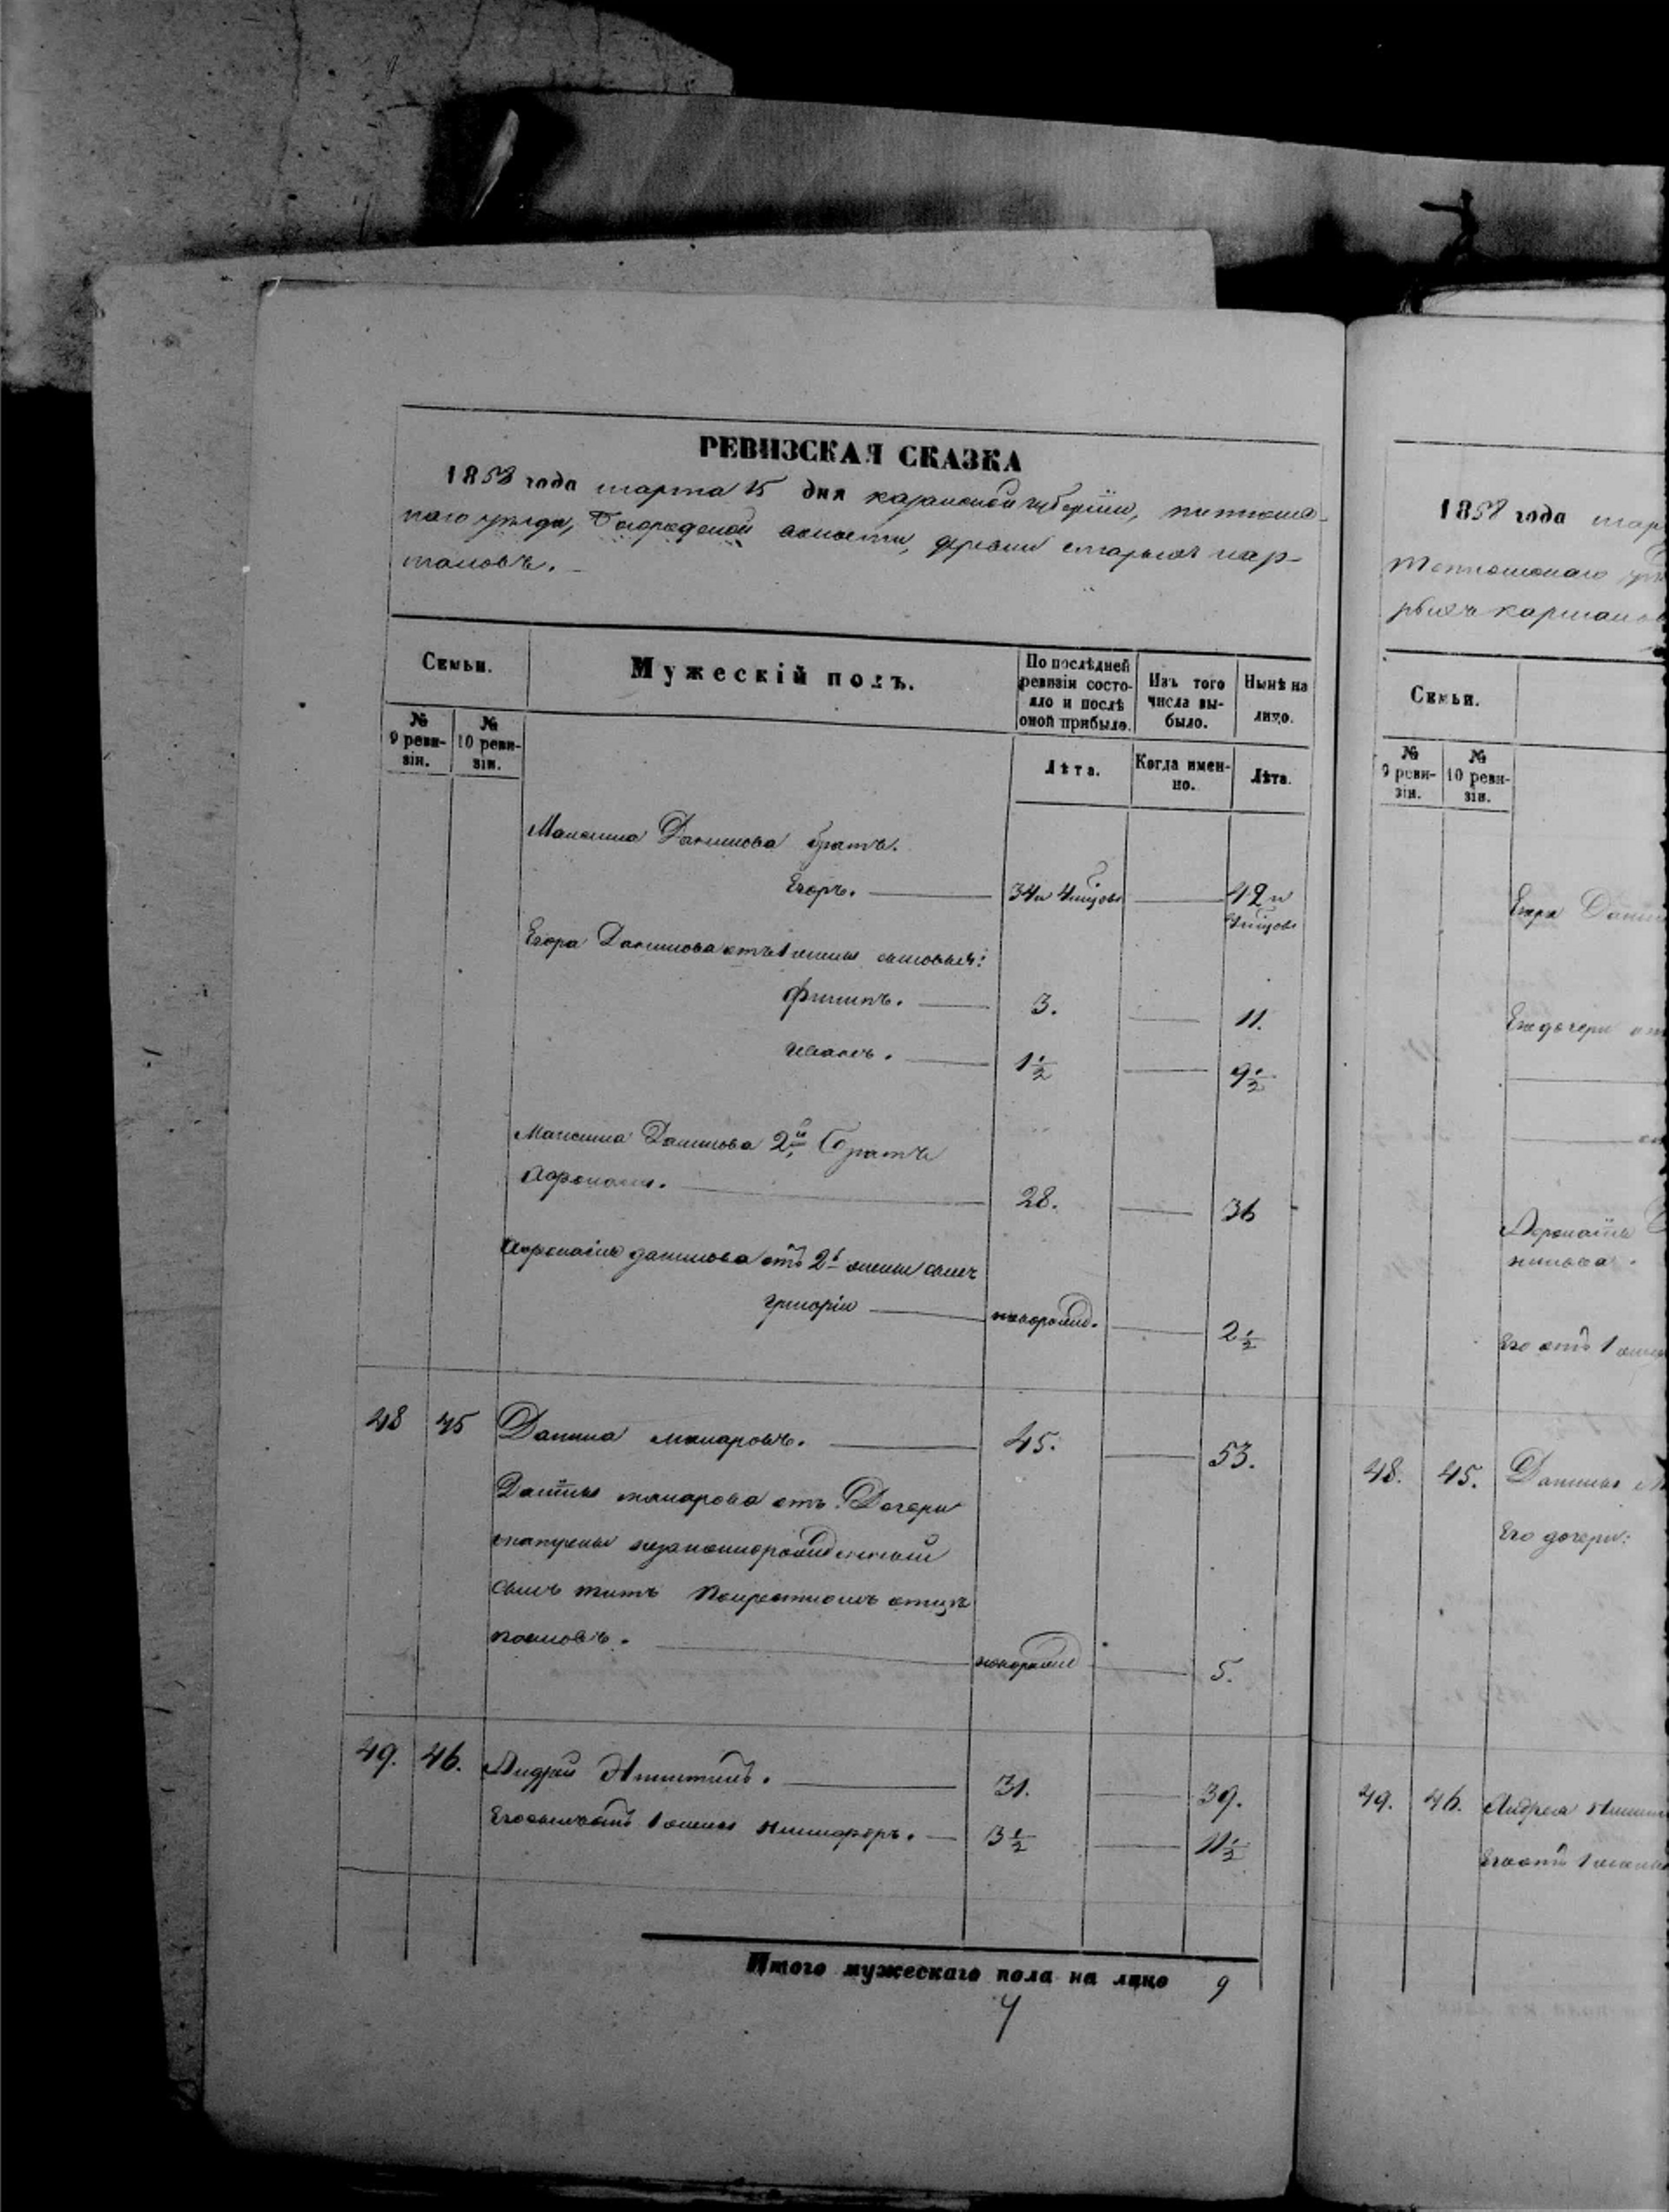 РЕВИЗСКАЯ СКАЗКА
1858 года марта 15 дня казанской губерніи,
наго уезда, волости, деревни старыхъ кар-
мановъ.
Семьи.
Мужескій полъ.
По послѣдней ревизіи состо-яло и послѣ оной прибыло.
Изъ того числа вы-было.
Нынѣ на лицо.
№ 9 реви-зіи.
№ 10 реви-зіи.
Лѣта.
Когда имен-но.
Лѣта.
Максима Данилова братъ.
Егоръ. 34 и 42 и
Егора Данилова отъ 1 жены сыновья:
Филипъ. 3. 11.
Иванъ. 1½ 9½
Максима Данилова 2й братъ
Афонасій. 28. 36
Афонасія данилова отъ 2й жены сынъ
григорій новорожд. 2½
48 45 Данила макаровъ. 45. 53.
Данилы макарова отъ Дочери
незаконнорожденный
сынъ титъ по крестномъ отцѣ
новорожд 5.
49. 46. Андрей Никитинъ. 31. 39.
Его сынъ отъ 1 жены Никифоръ. 3½ 11½
Итого мужескаго пола на лицо 9
1858 года мар
рыхъ карман
Семьи.
№ 9 реви-зіи.
№ 10 реви-зіи.
Егора Дани
Его дочери
Афонасія
Его отъ 1
48. 45. Данилы М
Его дочери:
49. 46. Андрея Никит
Его отъ 1 жены